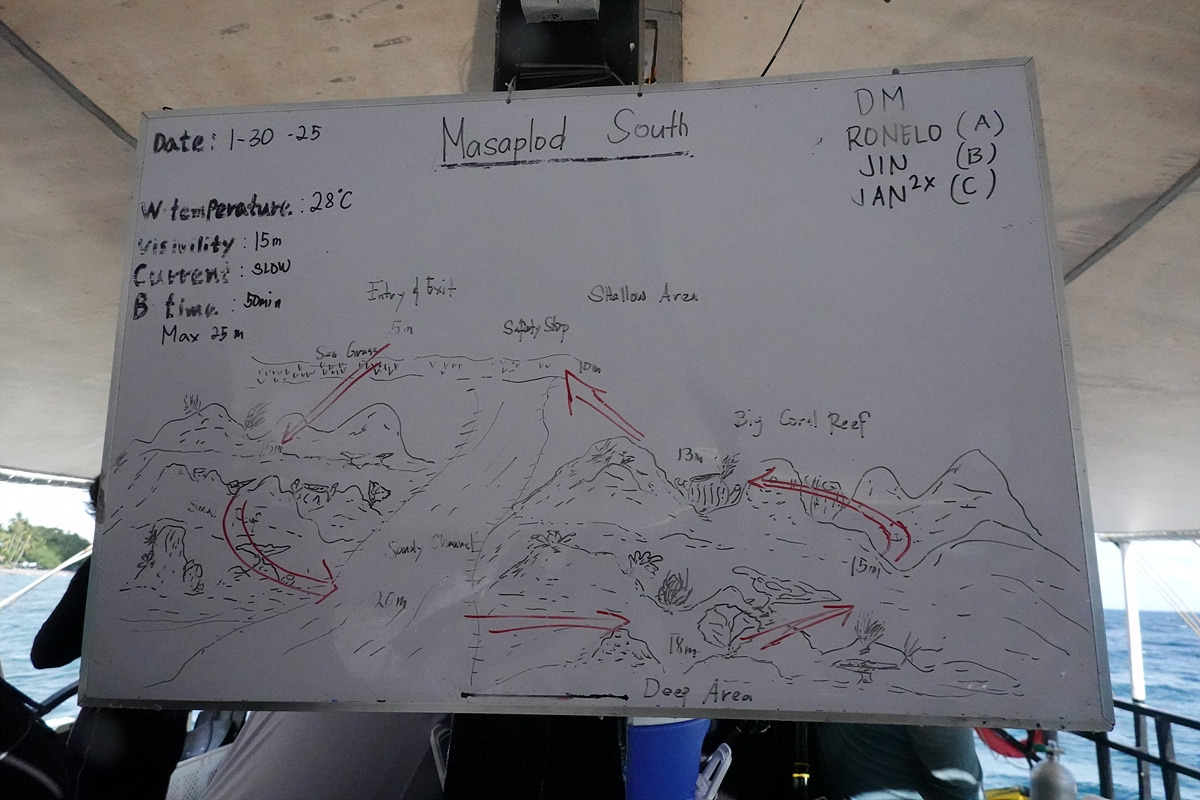 Date: 1-30-25
Masaplod South
DM
RONELO (A)
JIN (B)
JAN 2x (C)
W temperature: 28°C
Visivility: 15m
Current: SLOW
B time: 50min
Max 25 m
Entry & Exit
5m
Shallow Area
Safety Stop
Sea Grass
10m
15m
Big Coral Reef
13m
Small
Sandy Channel
15m
20m
18m
Deep Area